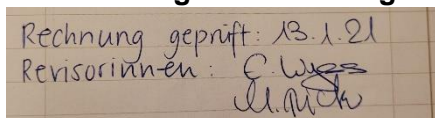 Rechnung geprüft: 13.1.21
Revisorinnen: E. Wyss
M. Rick